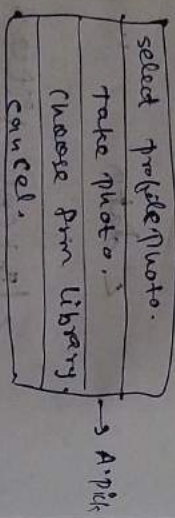 select profile photo.
take photo.
choose from library.
cancel.
→ A.pick